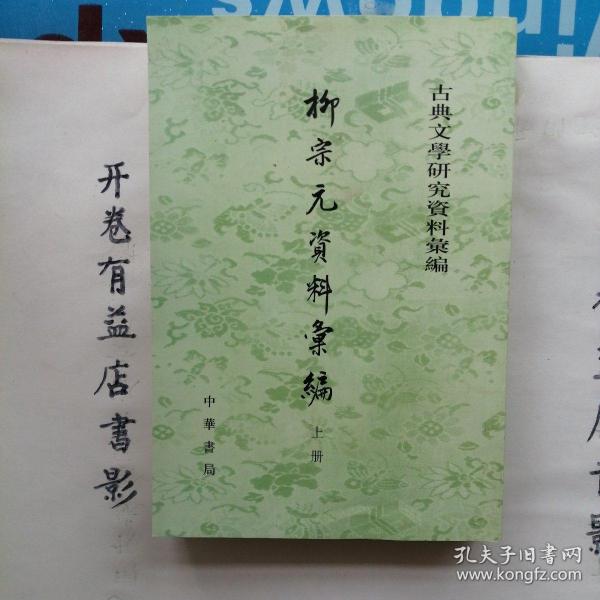 古典文學研究資料彙編
柳宗元資料彙編
上册
中華書局
开卷有益店書影
孔夫子旧書网
www.kongfz.com